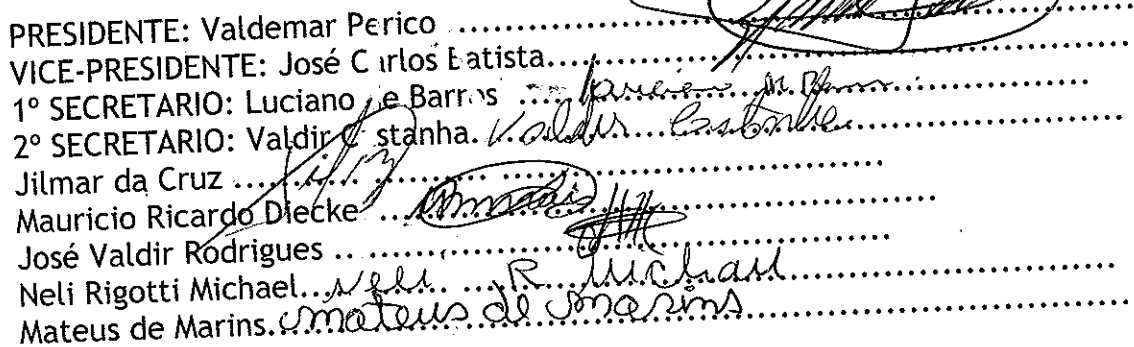 PRESIDENTE: Valdemar Perico ..........
VICE-PRESIDENTE: José Carlos Batista..........
1º SECRETARIO: Luciano de Barros ..........
2º SECRETARIO: Valdir Castanha. Valdir Castanha
Jilmar da Cruz ..........
Mauricio Ricardo Diecke ..........
José Valdir Rodrigues ..........
Neli Rigotti Michael... Neli R Michael
Mateus de Marins. mateus de marins